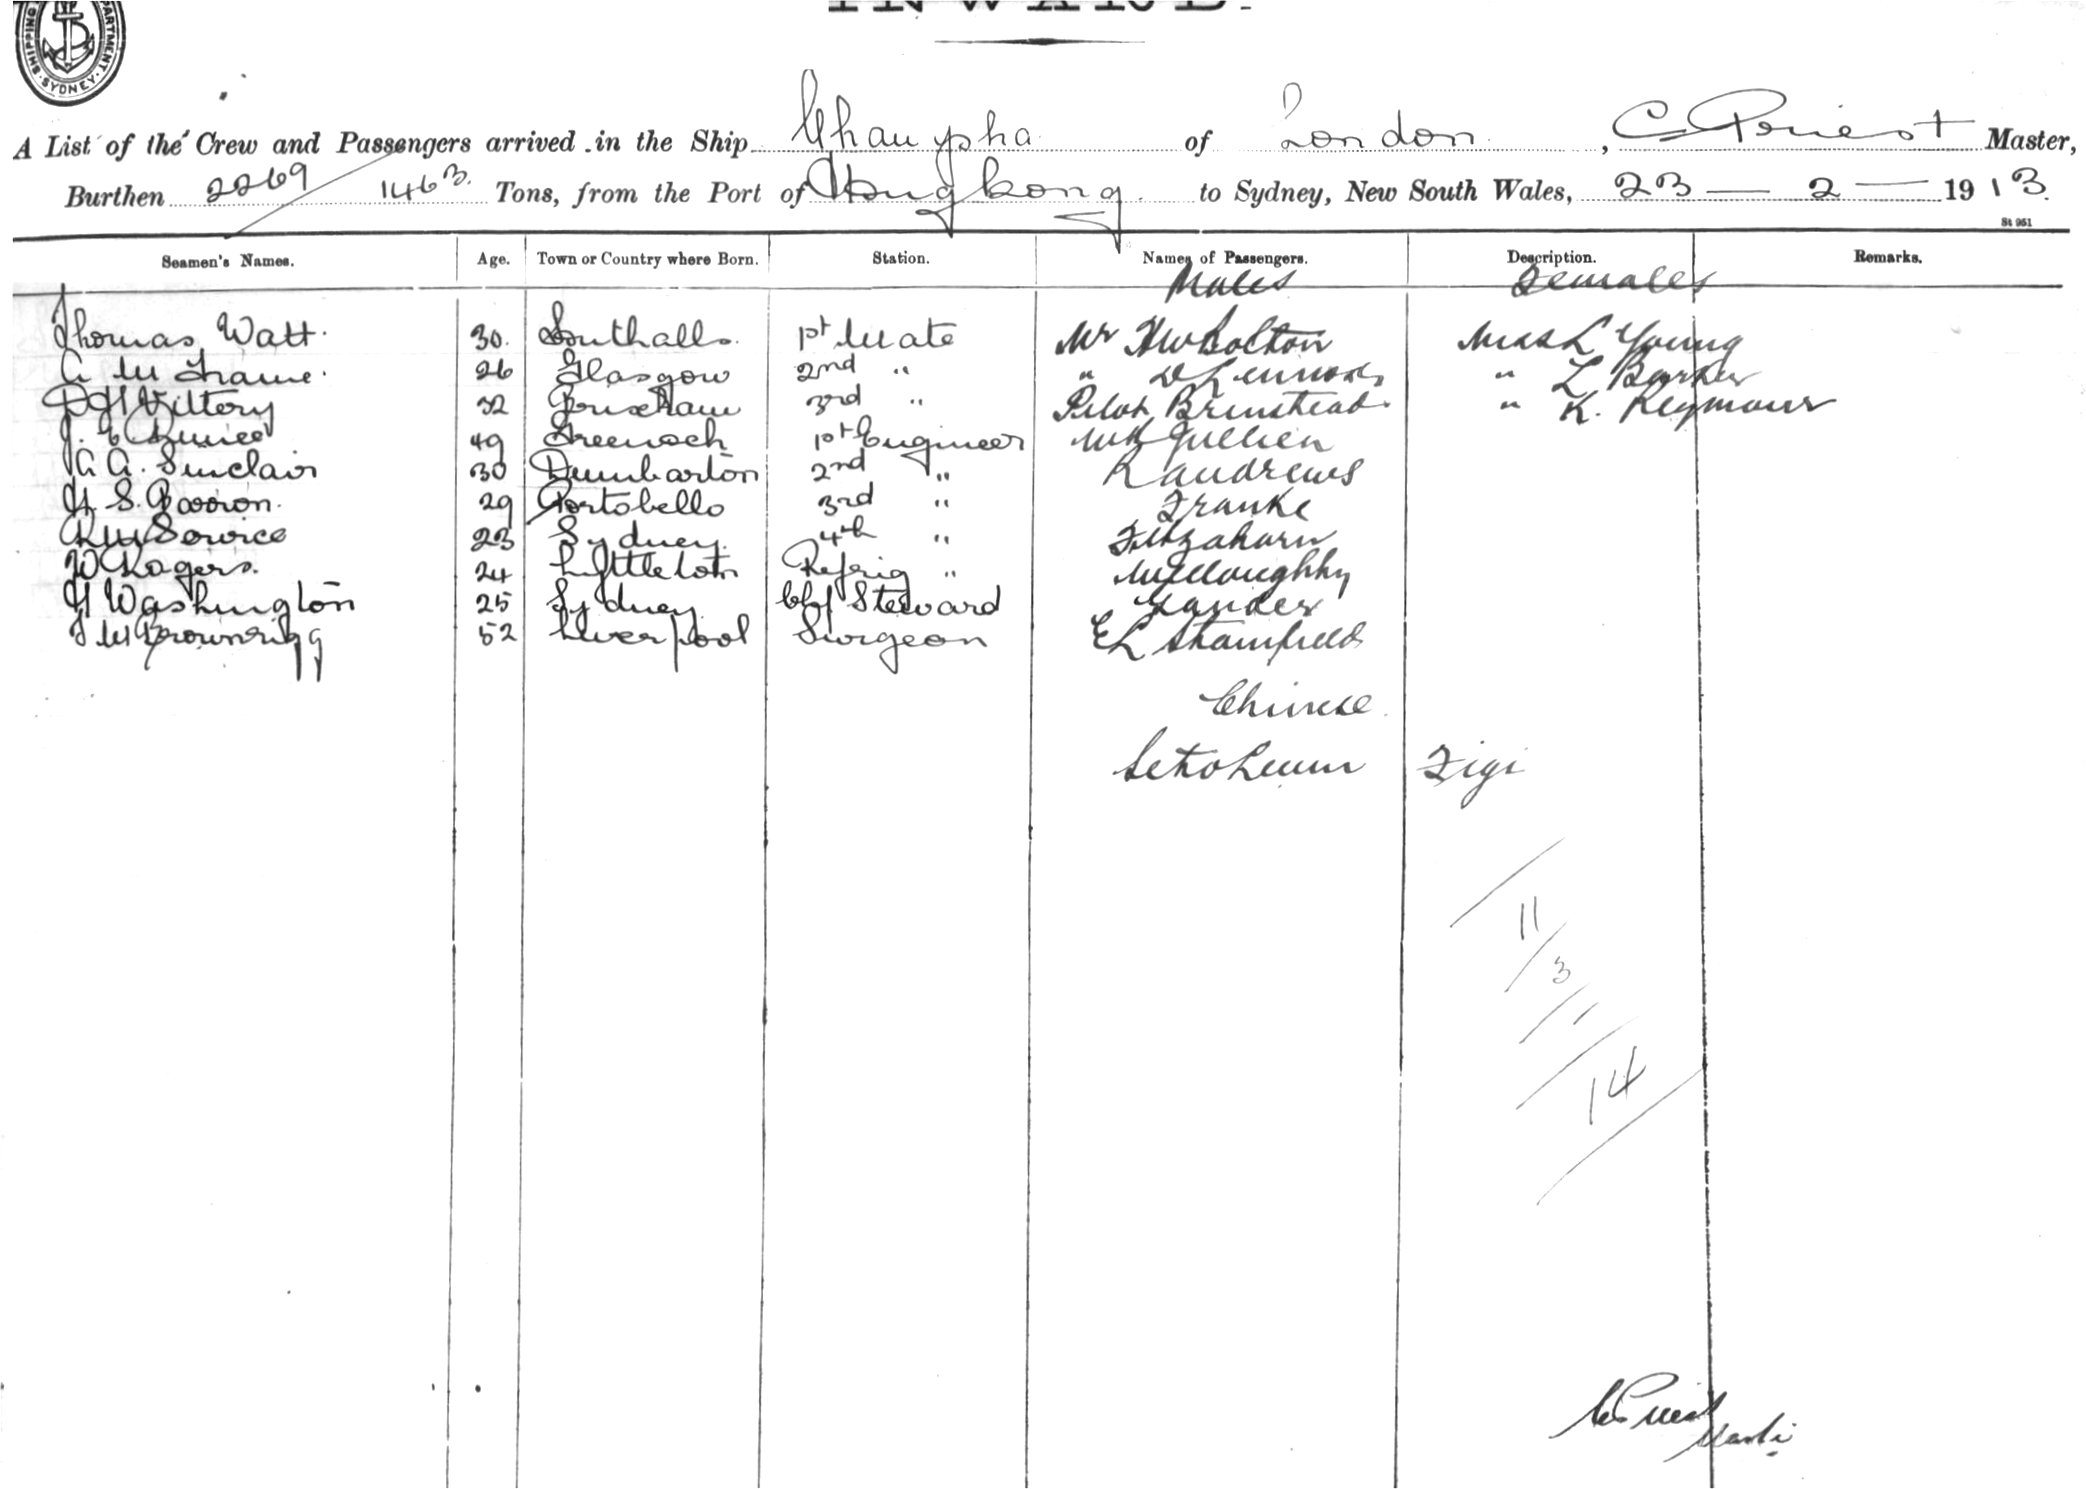 SHIPPING DEPARTMENT SYDNEY
INWARD.
A List of the Crew and Passengers arrived in the Ship Chaupsha of London, C Priest Master,
Burthen 2269 / 1463 Tons, from the Port of Hongkong to Sydney, New South Wales, 23 — 2 — 1913.
St 951
Seamen's Names. Age. Town or Country where Born. Station. Names of Passengers. Description. Remarks.
Males Females
Thomas Watt. 30. 1st Mate Mr HW Bolton Miss L Young
A M Frame. 26 Glasgow 2nd " " " L Barker
Vittery 32 Brixham 3rd " Pilot " K.
49 Greenock 1st Engineer
A A. Sinclair 30 Dumbarton 2nd " R Andrews
H. S. 29 Portobello 3rd " Franke
Service 23 Sydney. 4th "
W Rogers. 24 Lyttleton Refrig " Willoughby
H Washington 25 Sydney Chf Steward
Brownrigg 52 Liverpool Surgeon E L
Chinese.
Fiji
11
3
14
C Priest